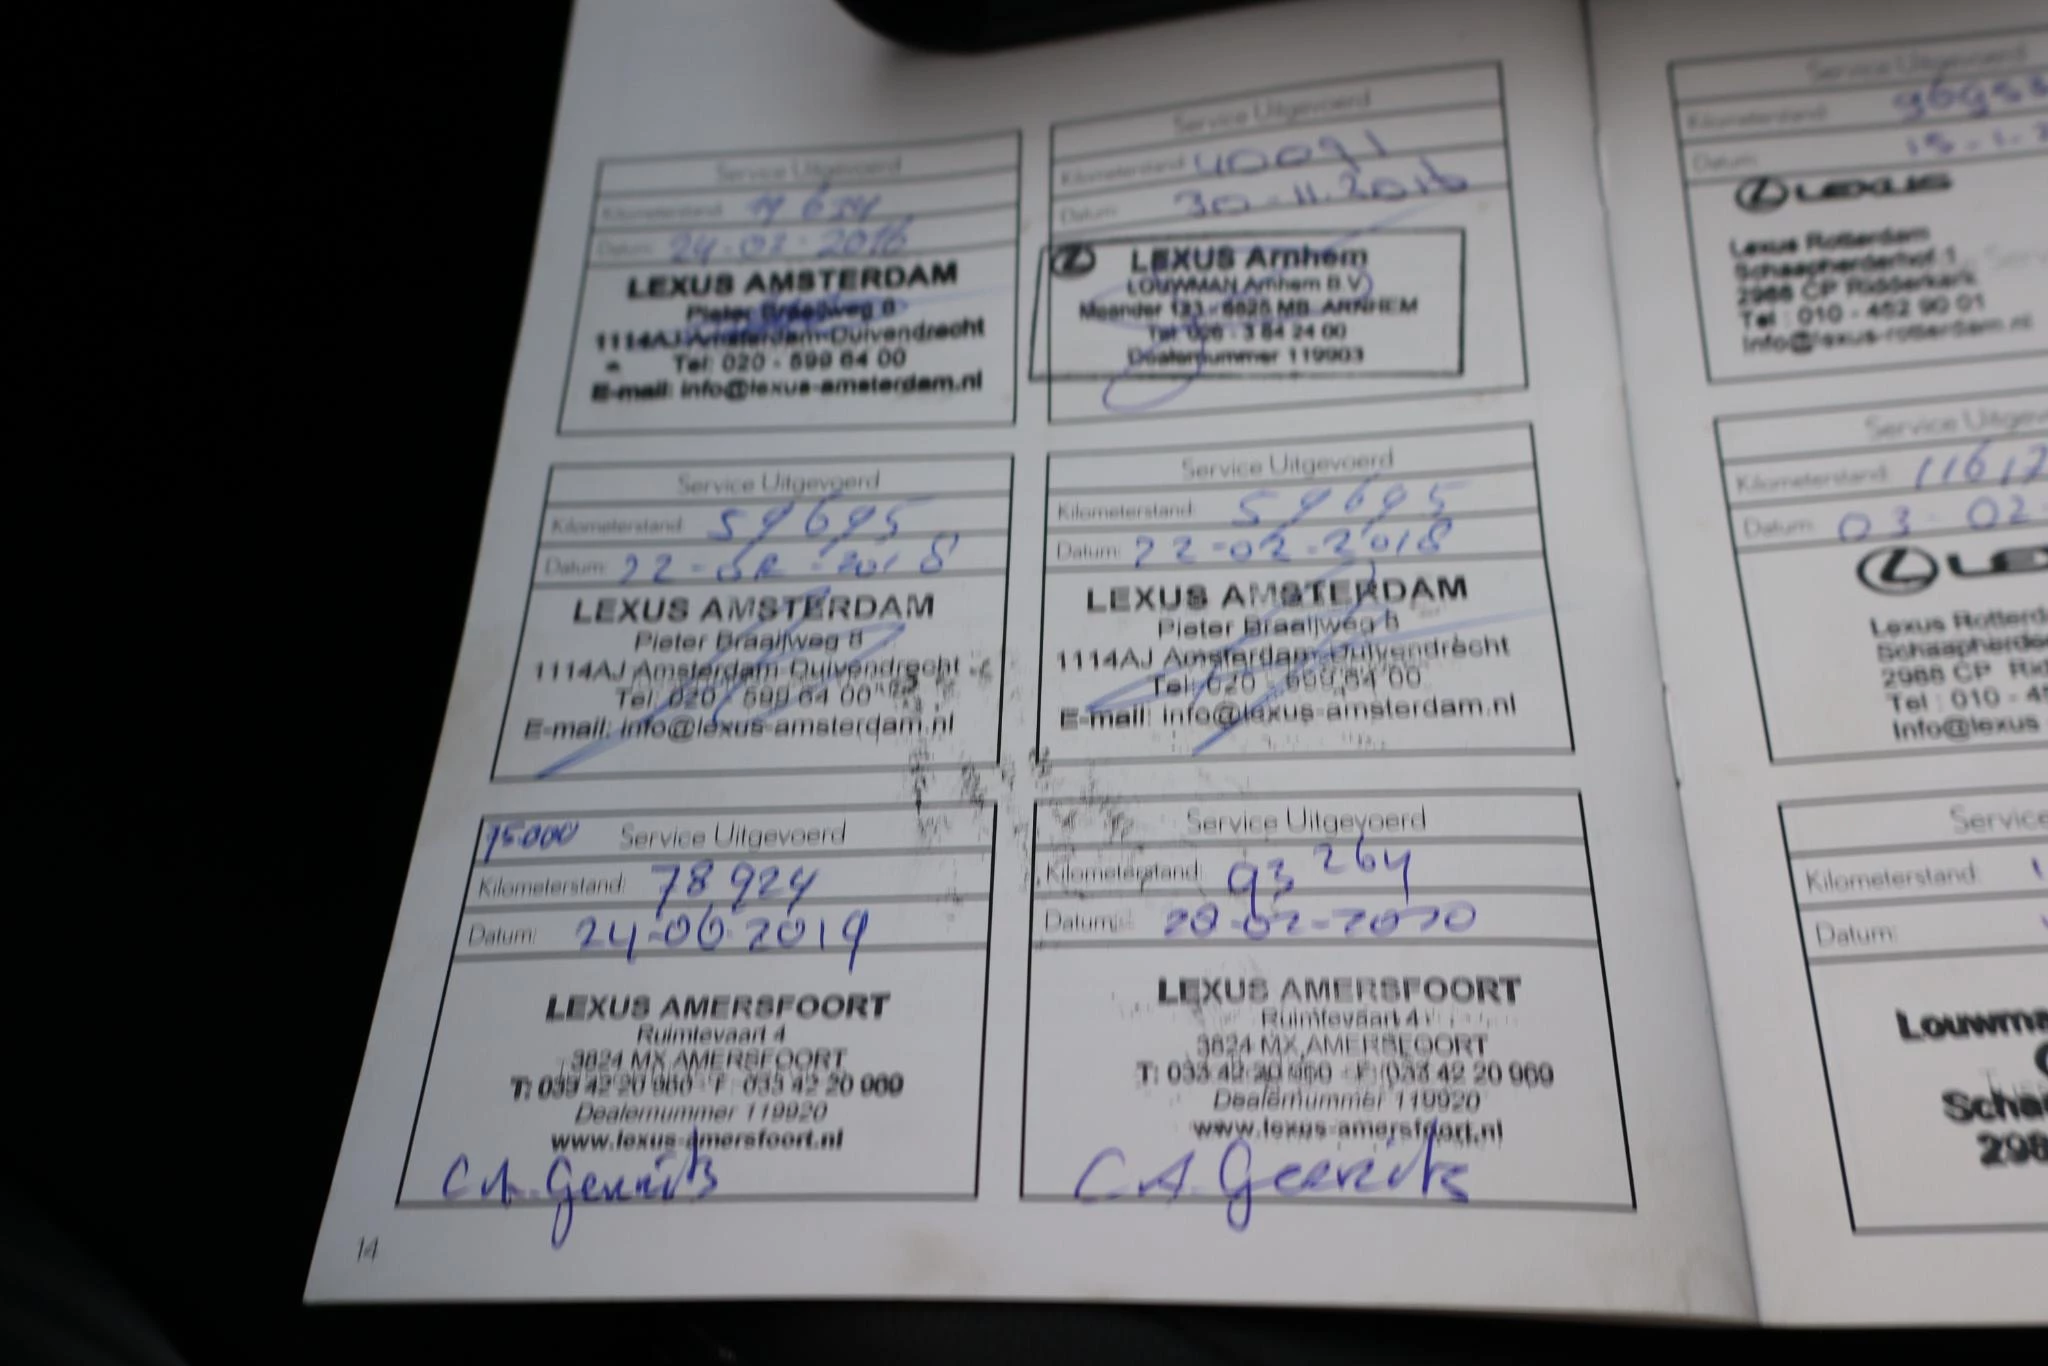 Service Uitgevoerd
Kilometerstand:
Datum: 24-02-2016
LEXUS AMSTERDAM
Pieter Braaijweg 8
1114AJ Amsterdam-Duivendrecht
Tel: 020 - 599 64 00
E-mail: info@lexus-amsterdam.nl
Service Uitgevoerd
Kilometerstand: 40091
Datum: 30-11-2016
LEXUS Arnhem
LOUWMAN Arnhem B.V.
Meander 123 - 6825 MB ARNHEM
Tel: 026 - 3 84 24 00
Dealernummer 119903
Service Uitgevoerd
Kilometerstand: 59695
Datum: 22-02-2018
LEXUS AMSTERDAM
Pieter Braaijweg 8
1114AJ Amsterdam-Duivendrecht
Tel: 020 - 599 64 00
E-mail: info@lexus-amsterdam.nl
Service Uitgevoerd
Kilometerstand: 59695
Datum: 22-02-2018
LEXUS AMSTERDAM
Pieter Braaijweg 8
1114AJ Amsterdam-Duivendrecht
Tel: 020 - 599 64 00
E-mail: info@lexus-amsterdam.nl
75.000 Service Uitgevoerd
Kilometerstand: 78924
Datum: 24-06-2019
LEXUS AMERSFOORT
Ruimtevaart 4
3824 MX AMERSFOORT
T: 033 42 20 960 - F: 033 42 20 969
Dealernummer 119920
www.lexus-amersfoort.nl
C.A. Gerrits
Service Uitgevoerd
Kilometerstand: 93264
Datum: 20-02-2020
LEXUS AMERSFOORT
Ruimtevaart 4
3824 MX AMERSFOORT
T: 033 42 20 960 - F: 033 42 20 969
Dealernummer 119920
www.lexus-amersfoort.nl
C.A. Gerrits
14
Service Uitgevoerd
Kilometerstand: 96953
Datum: 15-1-2
LEXUS
Lexus Rotterdam
Schaapherderhof 1
2988 CP Ridderkerk
Tel : 010 - 452 90 01
Info@lexus-rotterdam.nl
Service Uitgevoe
Kilometerstand: 11612
Datum: 03-02-
LEX
Lexus Rotterd
Schaapherde
2988 CP Rid
Tel : 010 - 45
Info@lexus
Service
Kilometerstand:
Datum:
Louwma
Scha
298